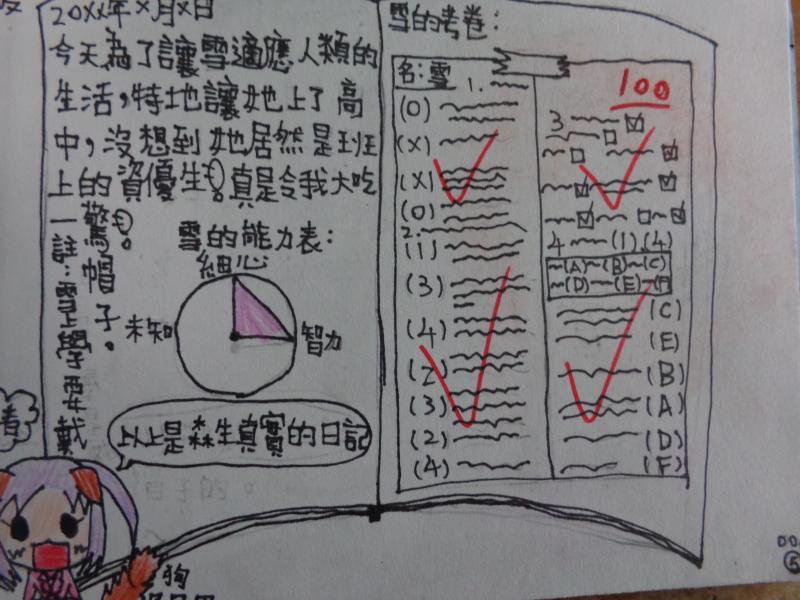 20XX年X月X日
今天為了讓雪適應人類的
生活,特地讓她上了高
中,沒想到她居然是班
上的資優生!真是令我大吃
一驚!
註:雪上學要戴
帽子。
雪的能力表:
細心
未知
智力
以上是森生真實的日記
狗
雪的考卷:
名:雪
100
1.
(O)
(X)
(X)
(O)
2.
(1)
(3)
(4)
(2)
(3)
(2)
(4)
3
4 (1)(4)
(A) (B) (C)
(D) (E) (F)
(C)
(E)
(B)
(A)
(D)
(F)
⑤